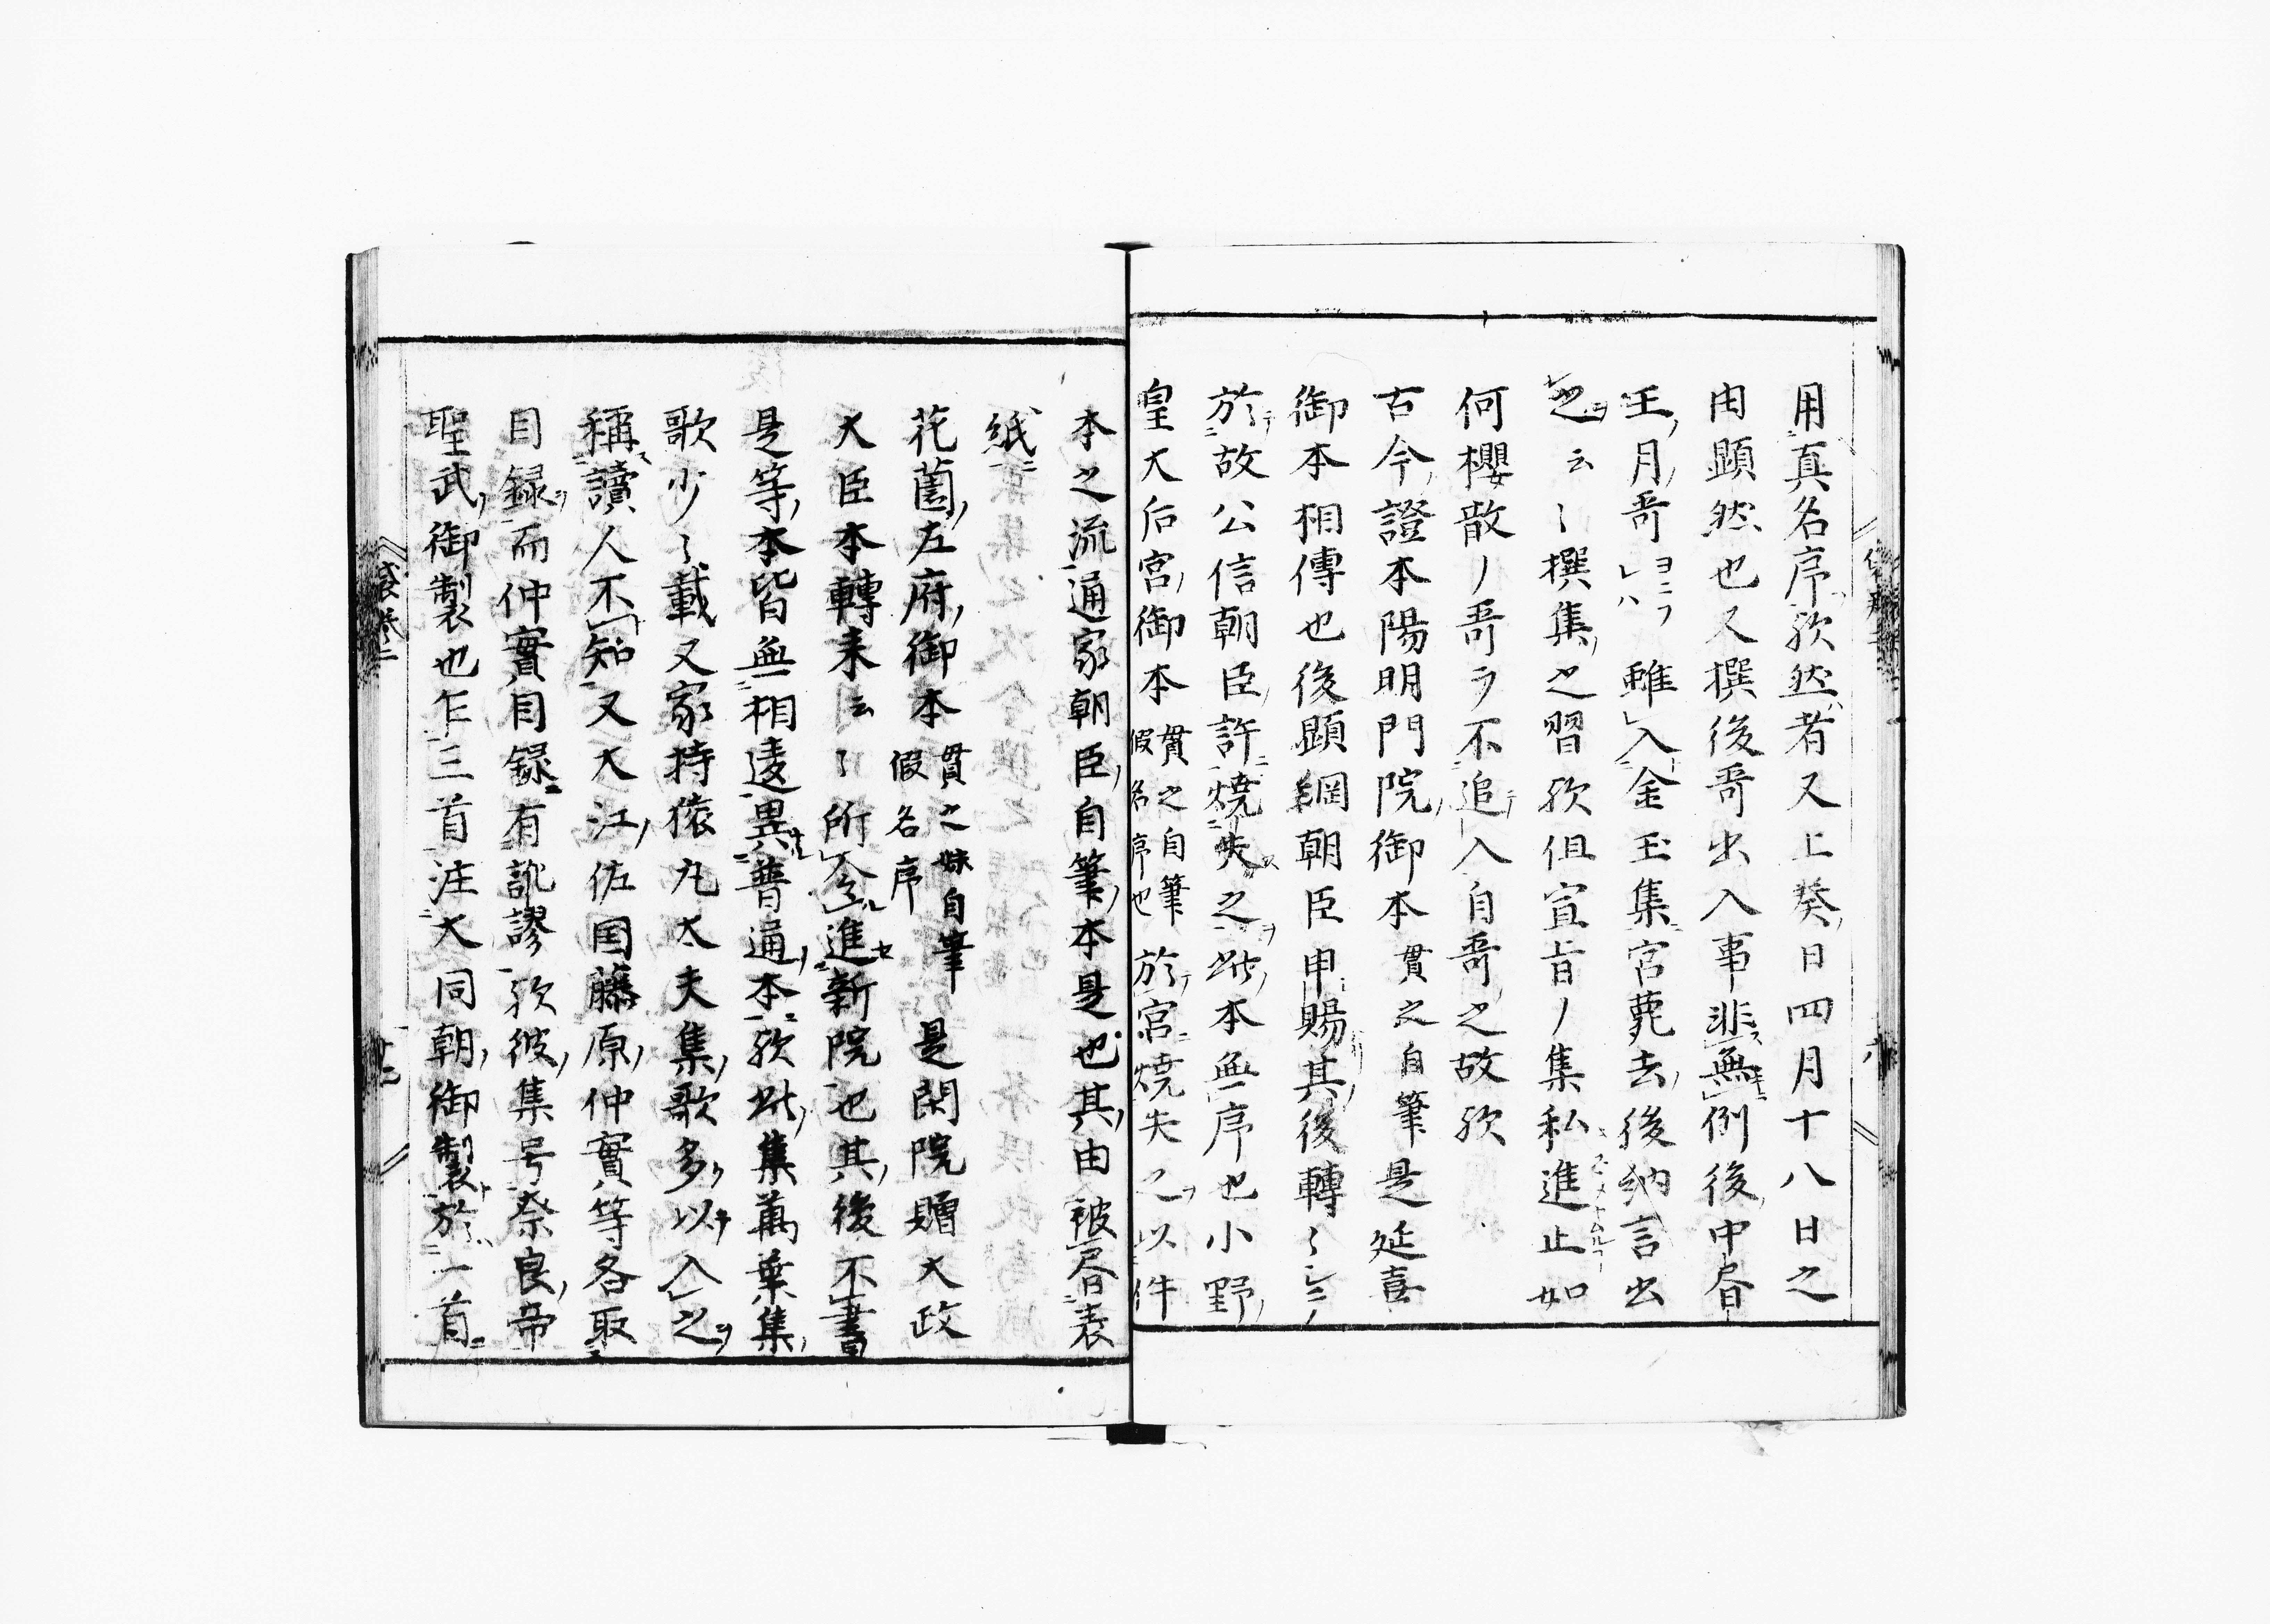 用真名序欤然者又上葵日四月十八日之
由顕然也又撰後哥出入事非無例後中書
王月哥ヨニフレハ雖入金玉集宮薨去後納言出
之云〻撰集之習欤但宣旨ノ集私進止如
何櫻散ノ哥ヲ不追入自哥之故欤
古今證本陽明門院御本貫之自筆是延喜
御本相傳也後顕綱朝臣申賜其後轉〻シテ
於故公信朝臣許焼失之此本無序也小野
皇大后宮御本貫之自筆假名序也於宮焼失之以件
本之流通家朝臣自筆本是也其由被書表
紙
花薗左府御本貫之妹自筆假名序是閑院贈太政
大臣本轉来云〻所令進新院也其後不書
是等本皆無相違異普通本欤此集萬葉集
歌少〻載又家持猿丸大夫集歌多以入之
稱讀人不知又大江佐国藤原仲實等各取
目録而仲實目録有訛謬欤彼集号奈良帝
聖武御製也乍三首注大同朝御製於一首